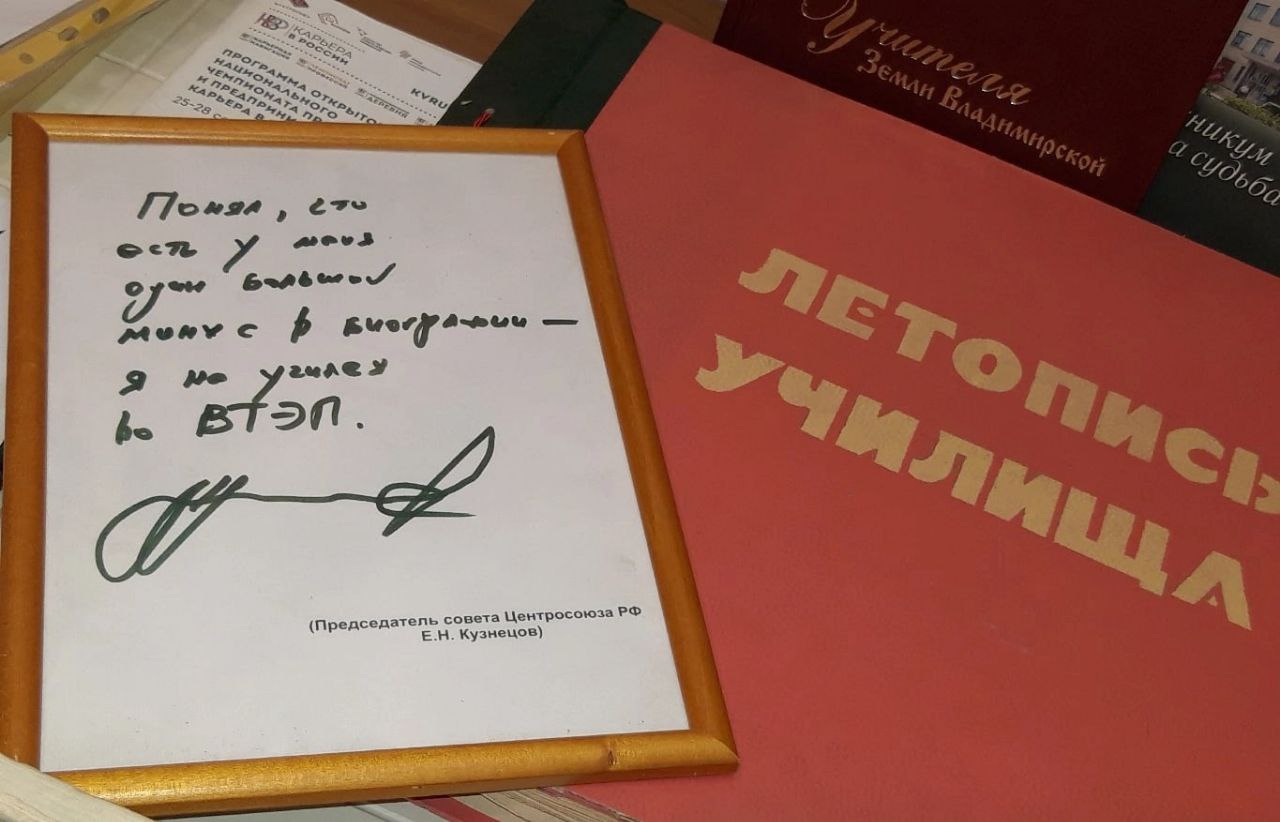 КАРЬЕРА
В РОССИИ
ПРОГРАММА ОТКРЫТО
НАЦИОНАЛЬНОГО
ЧЕМПИОНАТА ПР
И ПРЕДПРИНИ
КАРЬЕРА В
25-28 се
KVRU
Учителя
Земли Владимирской
никум
а судьба
Понял, что
есть у меня
один большой
минус в биографии —
я не учился
во ВТЭП.
(Председатель совета Центросоюза РФ
Е.Н. Кузнецов)
ЛЕТОПИСЬ
УЧИЛИЩА